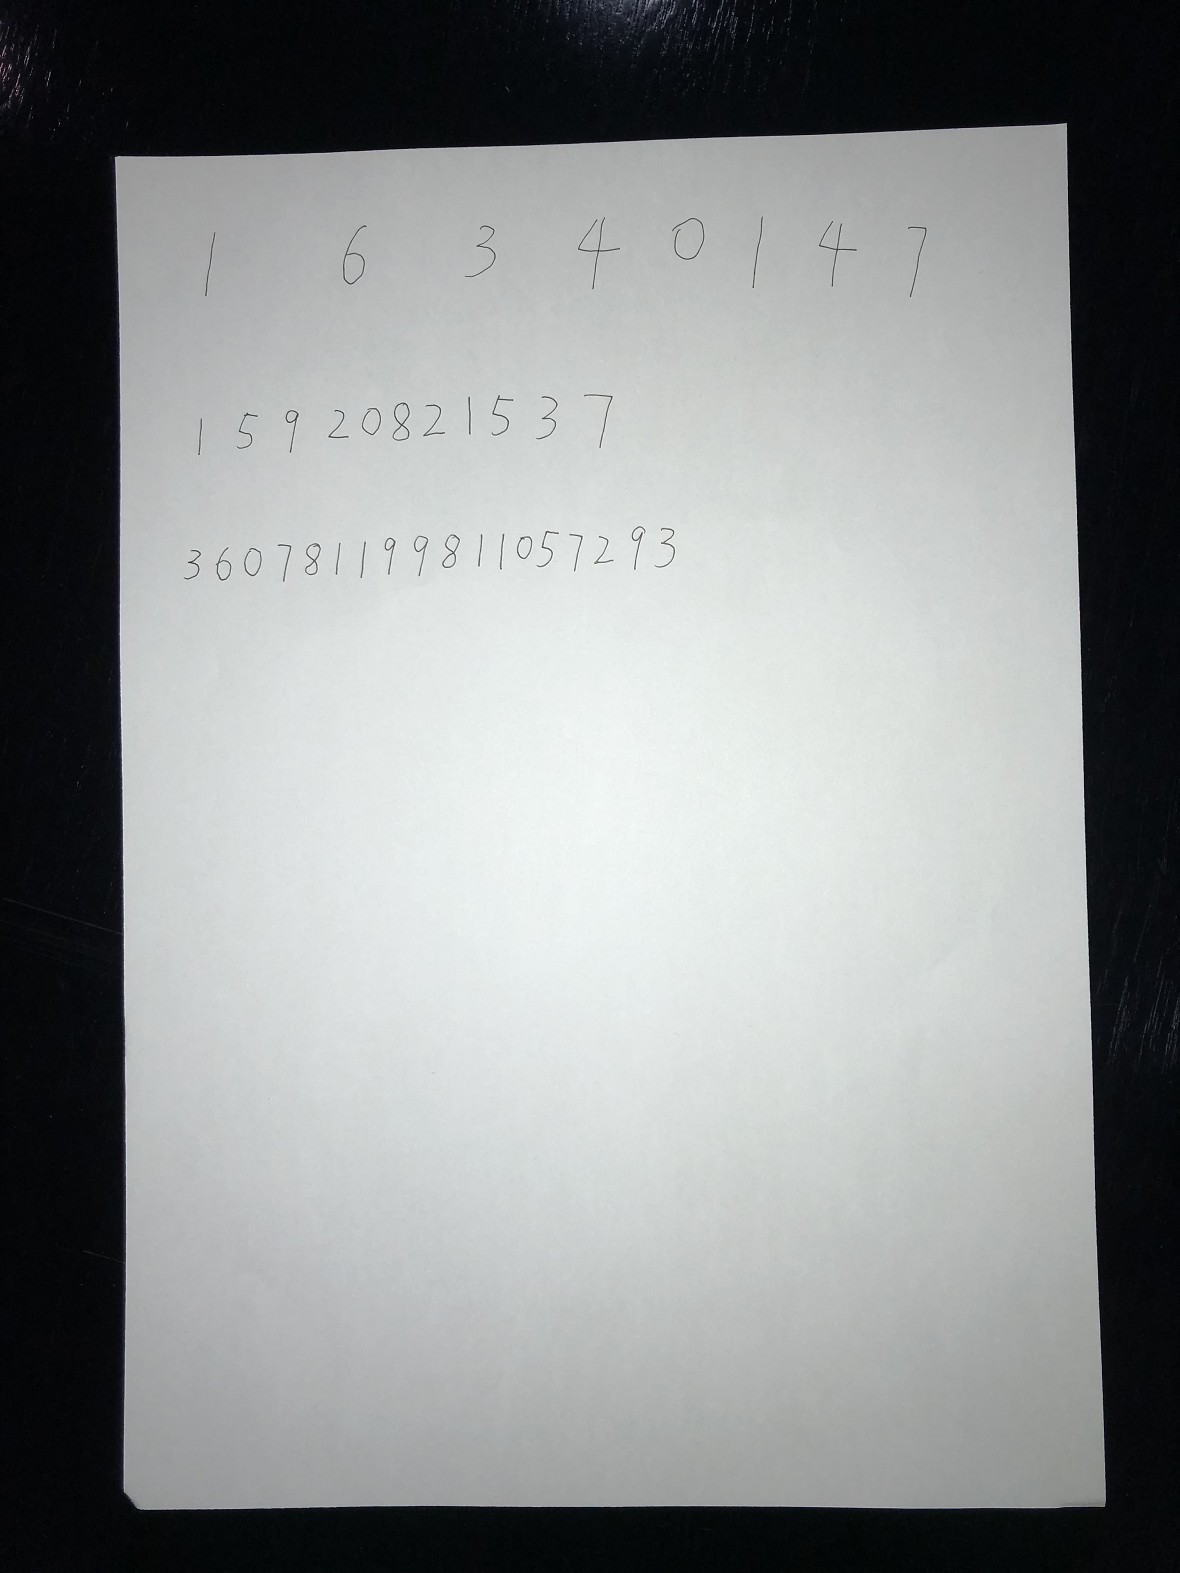 1 6 3 4 0 1 4 7
15920821537
360781199811057293